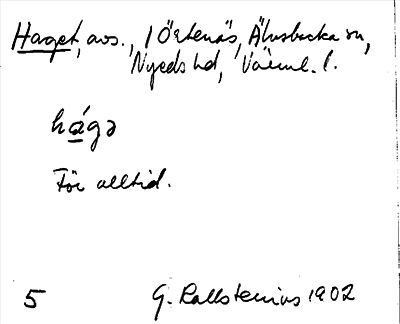 Haget, avs., 1 Östenäs, Älvsbacka sn,
Nyeds hd, Värml. l.
hágə
För alltid.
5 G. Kallstenius 1902